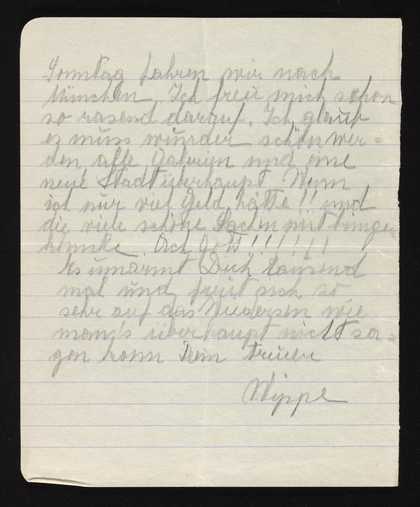 Sonntag fahren wir nach
München. Ich freu mich schon
so rasend darauf. Ich glaub
es muss wunder schön wer-
den, alle Galerien und eine
neue Stadt überhaupt. Wenn
ich nur viel Geld hätte!! und
die viele schöne Sachen mitbringen
könnte. Ach Gott!!!!!!!
Es umarmt Dich tausend
mal und freut sich so
sehr auf das Wiedersen wie
man's überhaupt nicht sa-
gen kann Dein treuer